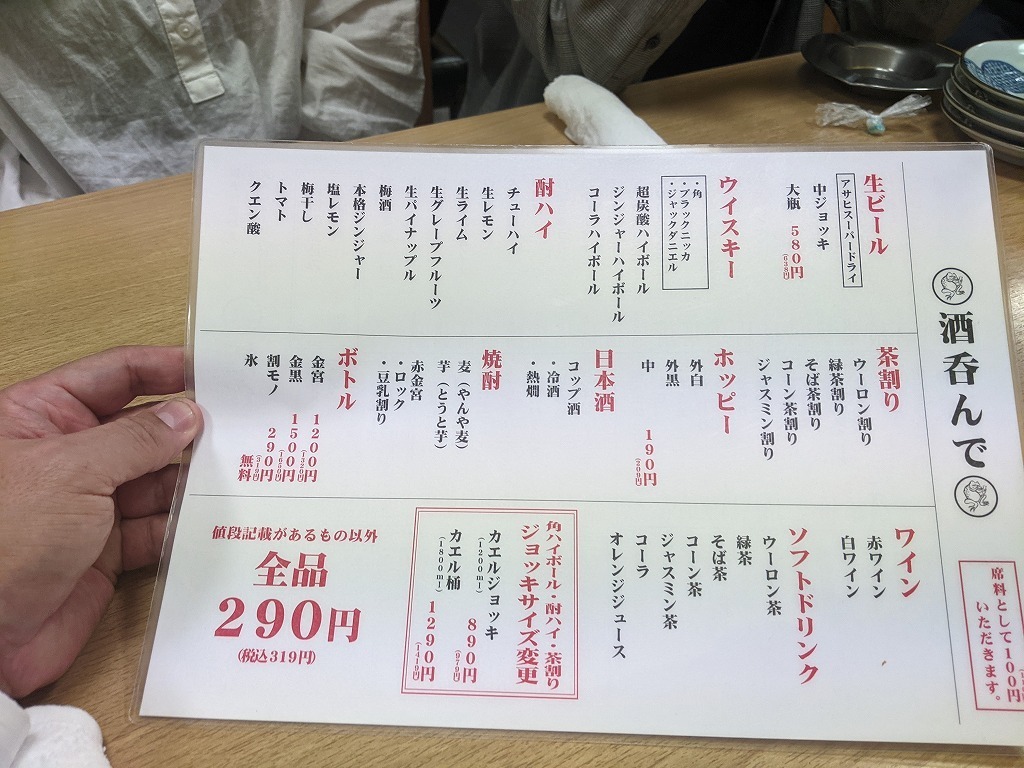 酒呑んで
席料として100円
いただきます。
生ビール
アサヒスーパードライ
中ジョッキ
大瓶 580円
(638円)
ウイスキー
・角
・ブラックニッカ
・ジャックダニエル
超炭酸ハイボール
ジンジャーハイボール
コーラハイボール
酎ハイ
チューハイ
生レモン
生ライム
生グレープフルーツ
生パイナップル
梅酒
本格ジンジャー
塩レモン
梅干し
トマト
クエン酸
茶割り
ウーロン割り
緑茶割り
そば茶割り
コーン茶割り
ジャスミン割り
ホッピー
外白
外黒
中 190円
(209円)
日本酒
コップ酒
・冷酒
・熱燗
焼酎
麦(やんや麦)
芋(とうと芋)
赤金宮
・ロック
・豆乳割り
ボトル
金宮 1200円
(1320円)
金黒 1500円
(1650円)
割モノ 290円
(319円)
氷 無料
ワイン
赤ワイン
白ワイン
ソフトドリンク
ウーロン茶
緑茶
そば茶
コーン茶
ジャスミン茶
コーラ
オレンジジュース
角ハイボール・酎ハイ・茶割り
ジョッキサイズ変更
カエルジョッキ 890円
(1200ml) (979円)
カエル桶 1290円
(1800ml) (1419円)
値段記載があるもの以外
全品
290円
(税込319円)